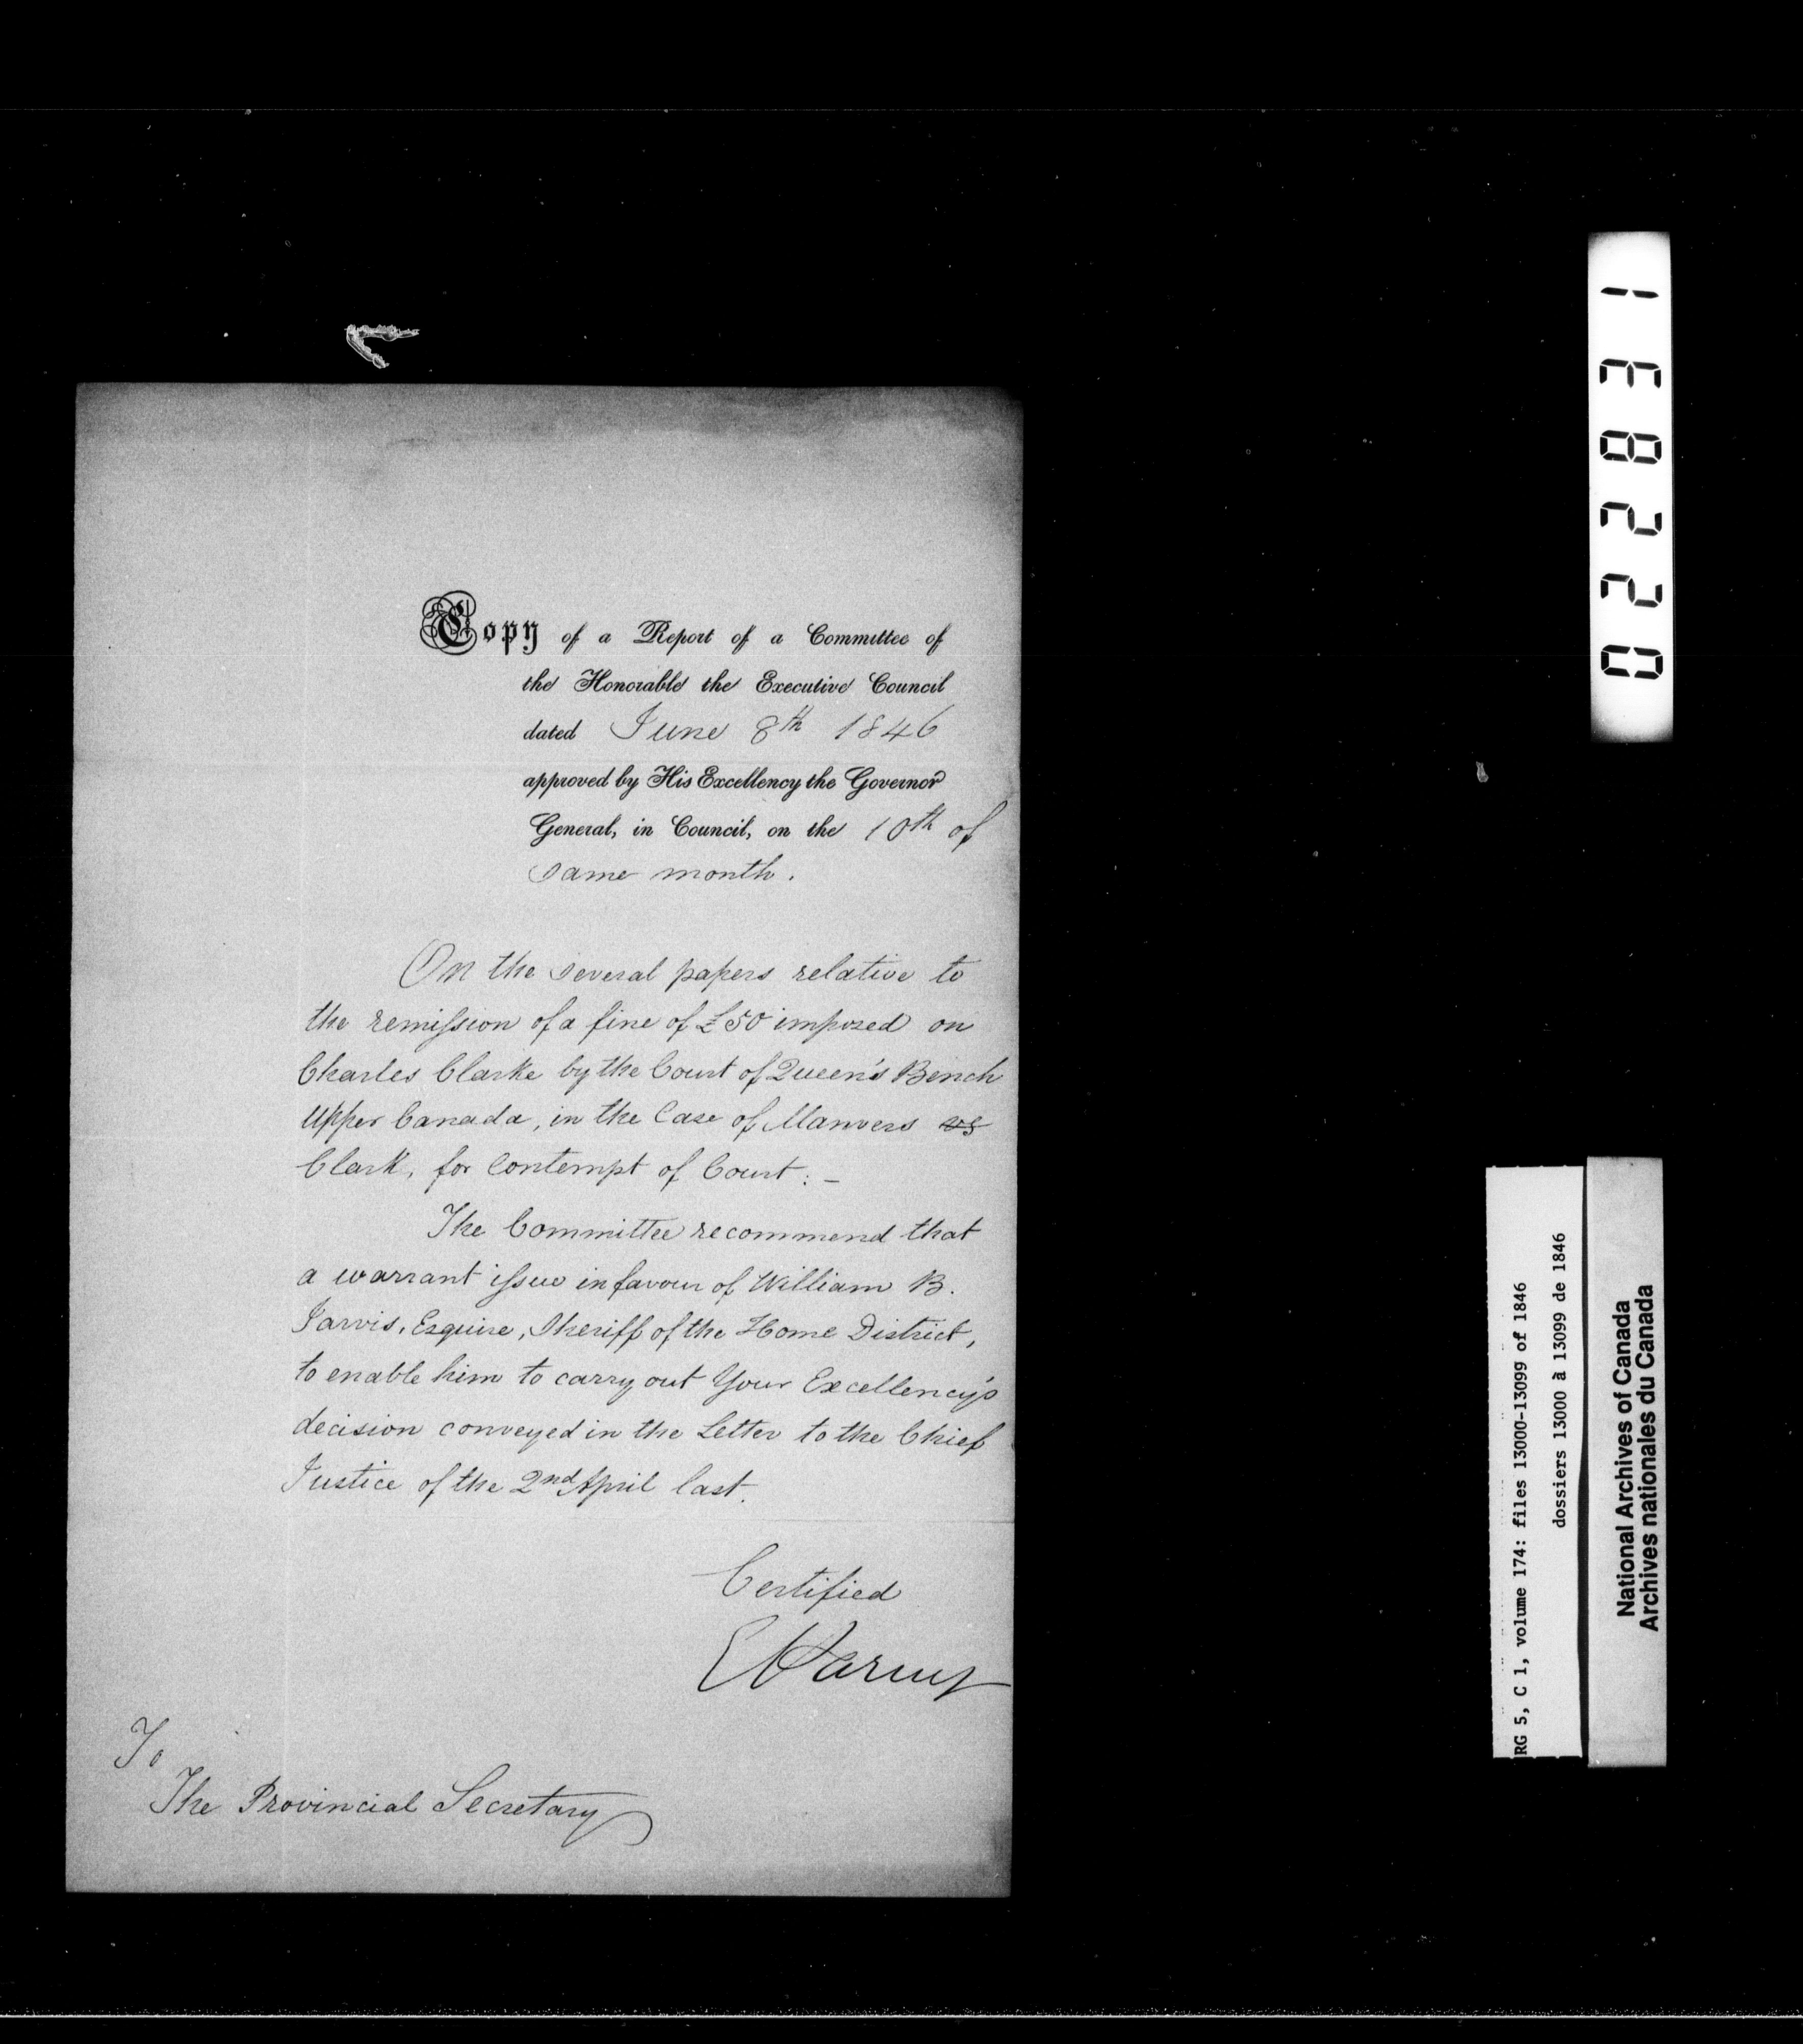 Copy of a Report of a Committee of
the Honorable the Executive Council
dated June 8th 1846
approved by His Excellency the Governor
General, in Council, on the 10th of
same month.
On the several papers relative to
the remission of a fine of £50 imposed on
Charles Clarke by the Court of Queen's Bench
Upper Canada, in the Case of Manvers vs
Clark, for Contempt of Court:-
The Committee recommend that
a warrant issue in favour of William B.
Jarvis, Esquire, Sheriff of the Home District,
to enable him to carry out Your Excellency's
decision conveyed in the Letter to the Chief
Justice of the 2nd April last.
Certified
To
The Provincial Secretary
138220
RG 5, C 1, volume 174: files 13000-13099 of 1846
dossiers 13000 à 13099 de 1846
National Archives of Canada
Archives nationales du Canada